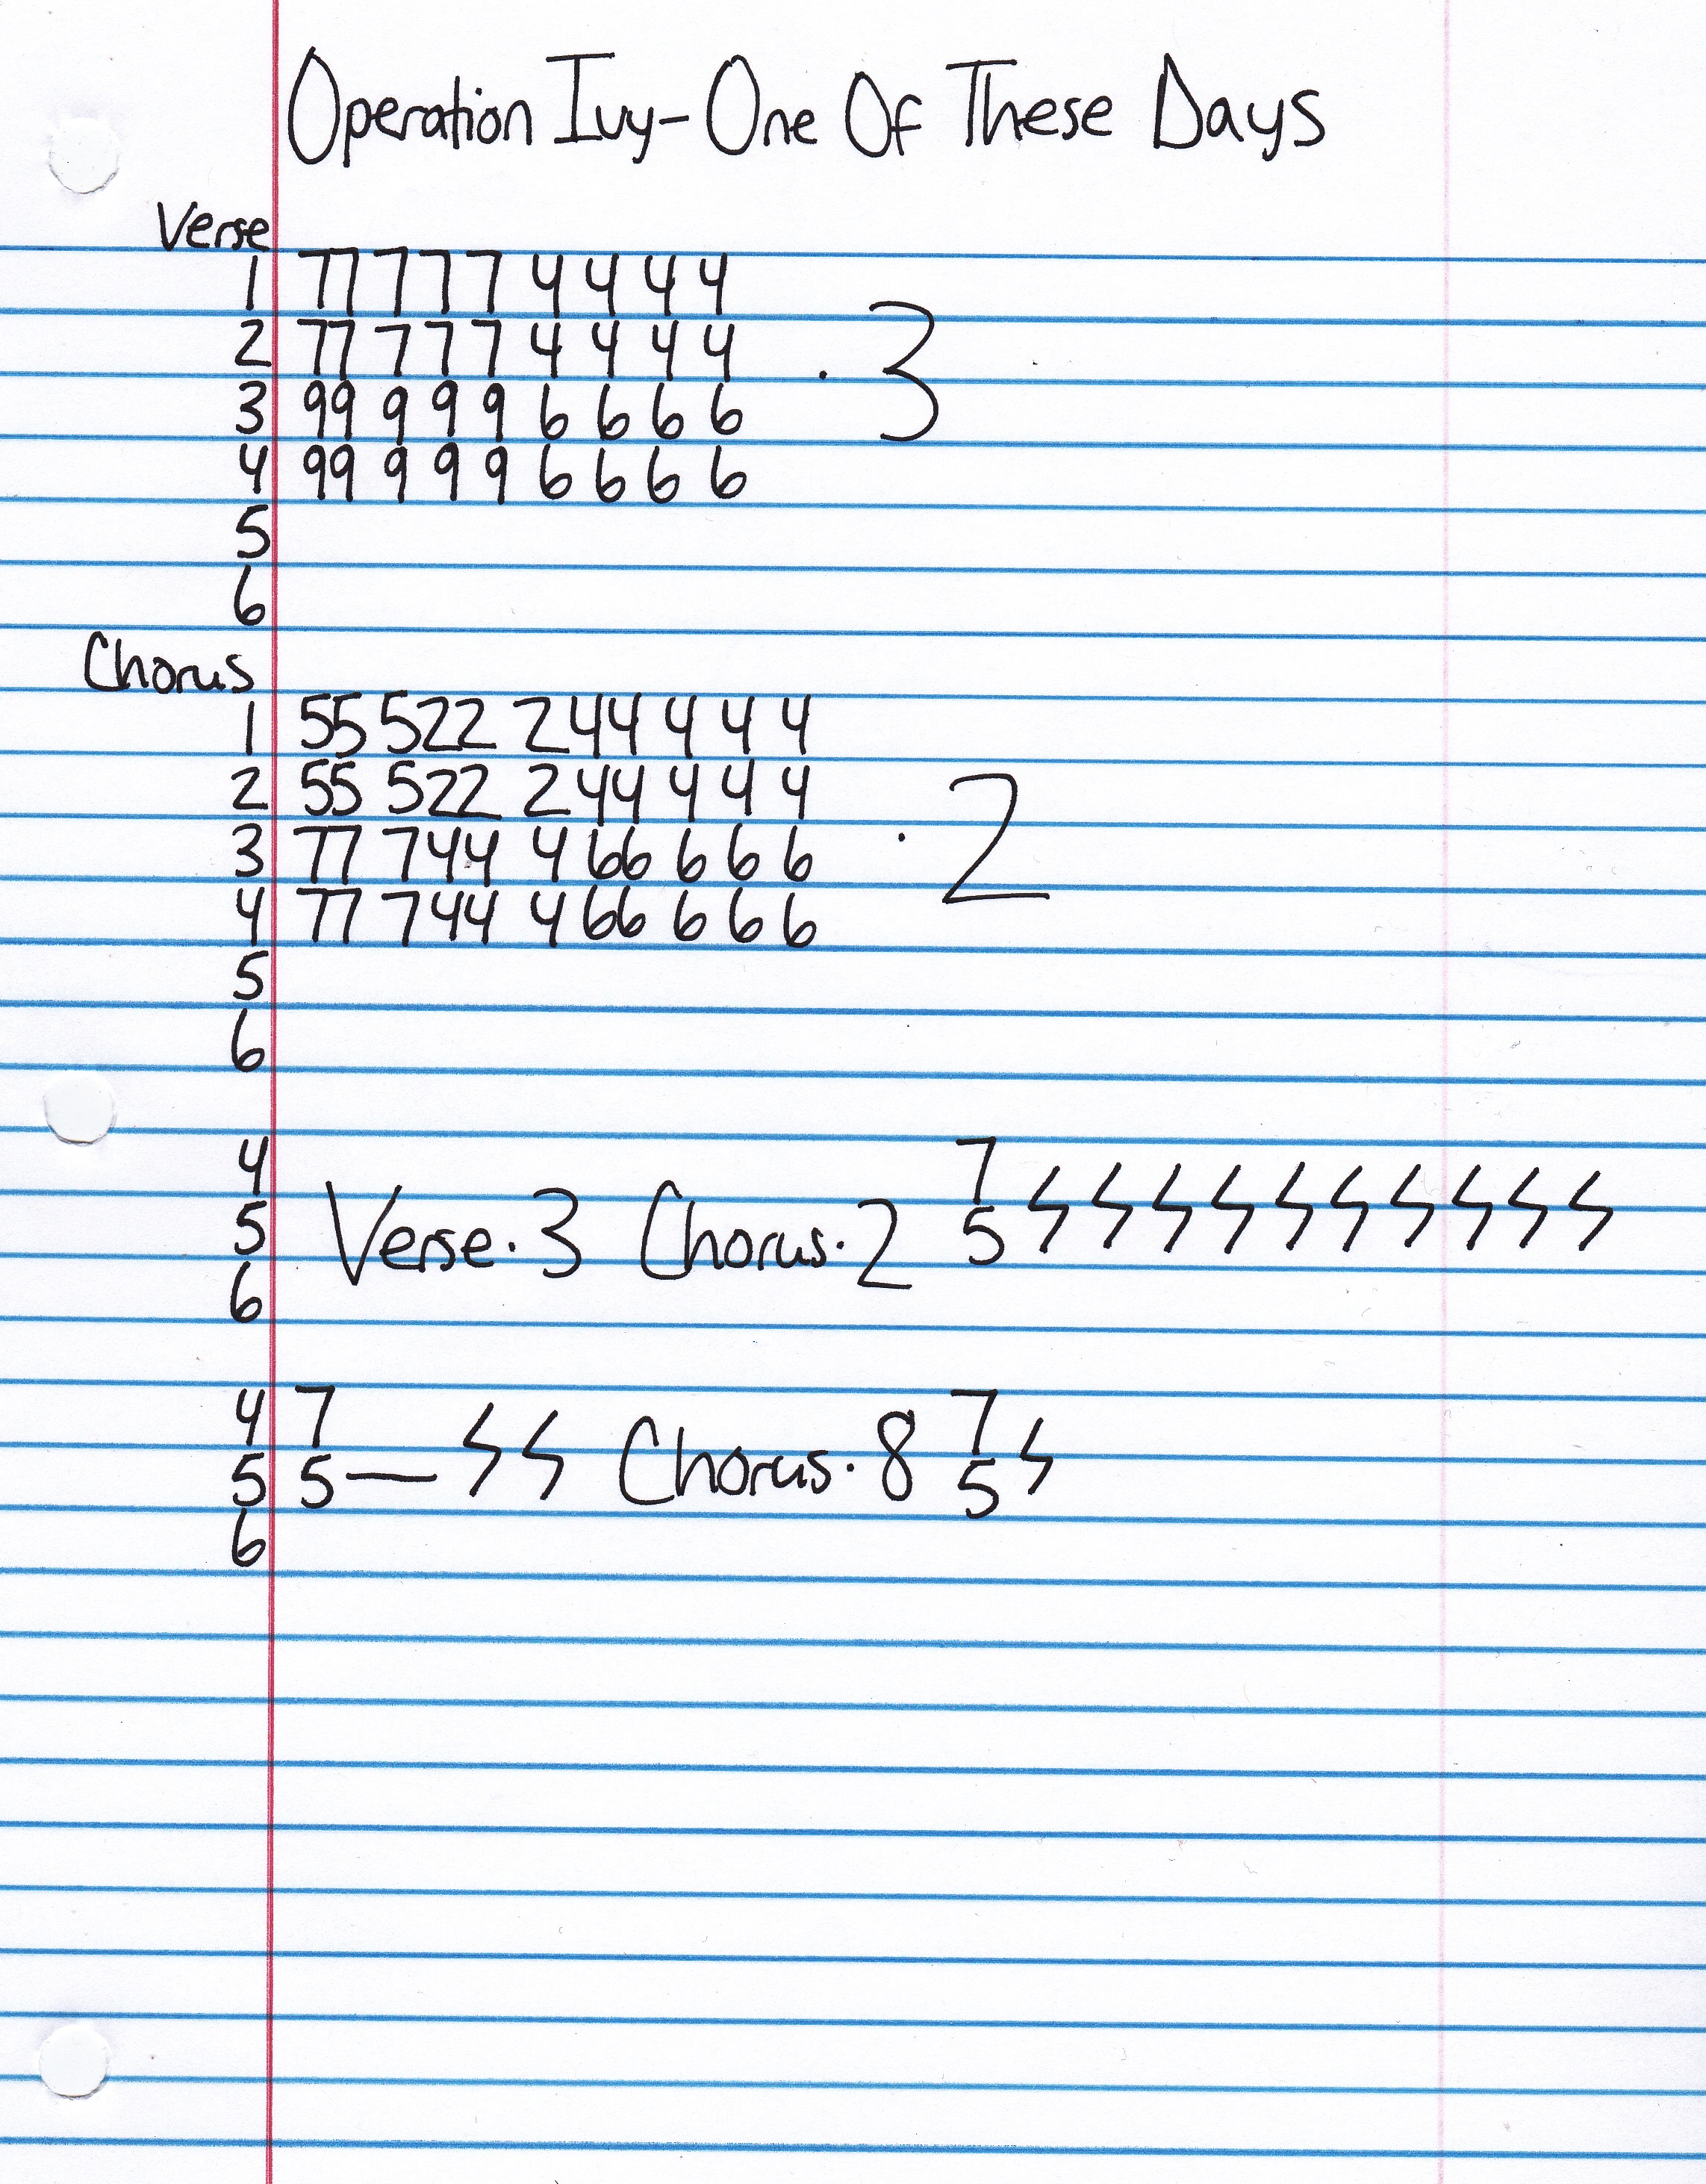 Operation Ivy - One Of These Days
Verse
1 77 7 7 7 4 4 4 4
2 77 7 7 7 4 4 4 4 . 3
3 99 9 9 9 6 6 6 6
4 99 9 9 9 6 6 6 6
5
6
Chorus
1 55 522 2 44 4 4 4
2 55 522 2 44 4 4 4 . 2
3 77 744 4 66 6 6 6
4 77 744 4 66 6 6 6
5
6
4 7
5 Verse . 3 Chorus . 2 5
6
4 7 7
5 5 — Chorus . 8 5
6